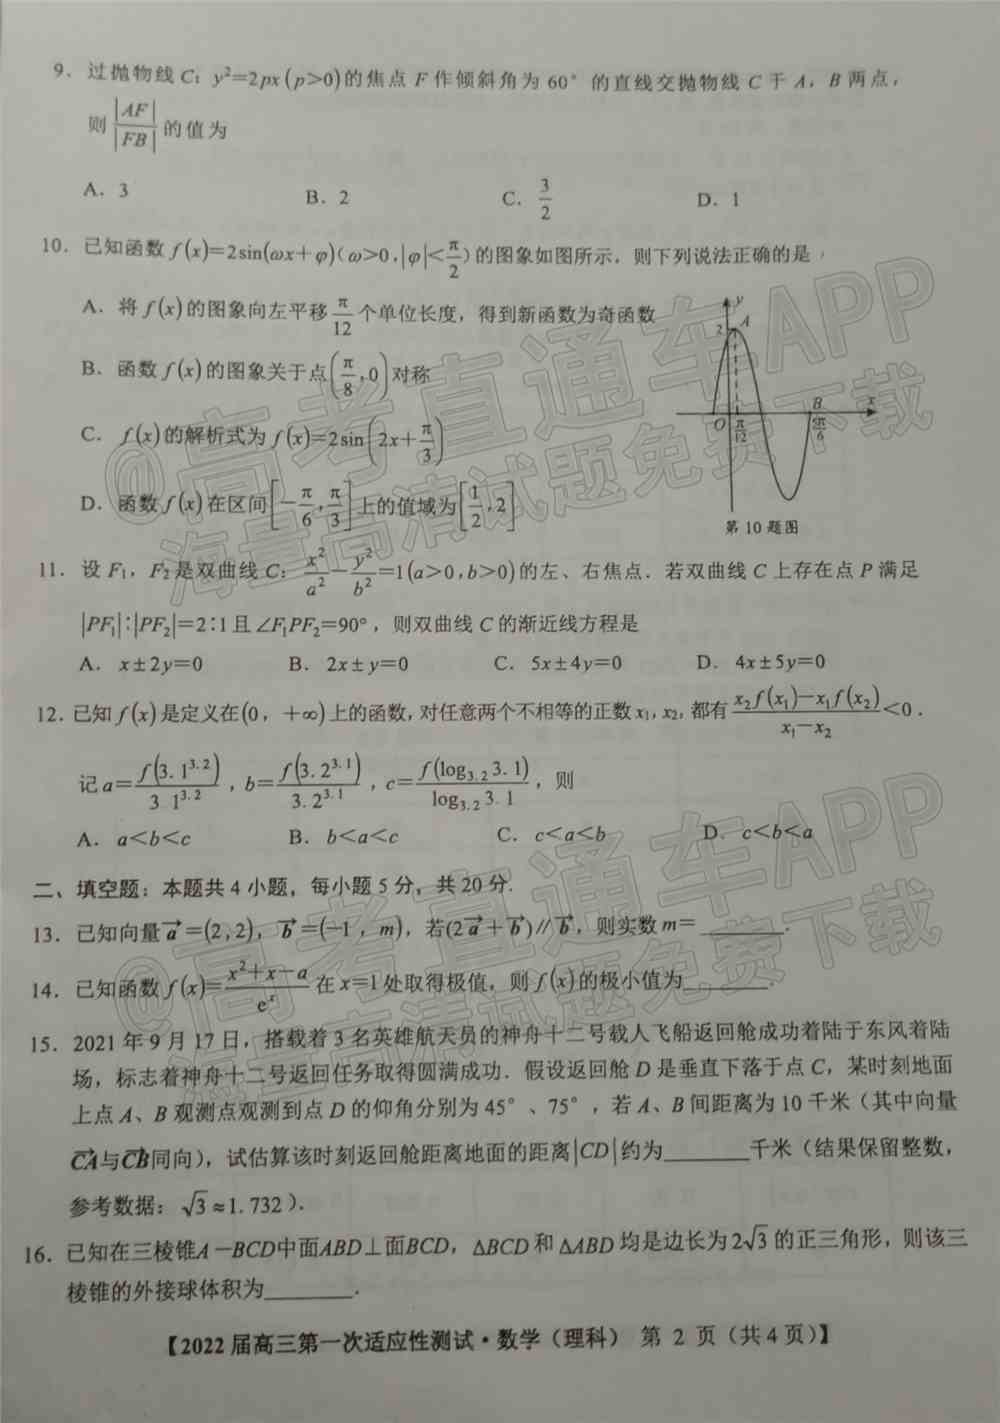 9. 过抛物线 C：y²=2px (p>0)的焦点 F 作倾斜角为 60° 的直线交抛物线 C 于 A，B 两点，
则 |AF|/|FB| 的值为
A. 3 B. 2 C. 3/2 D. 1
10. 已知函数 f(x)=2sin(ωx+φ)(ω>0,|φ|<π/2)的图象如图所示，则下列说法正确的是
A. 将 f(x) 的图象向左平移 π/12 个单位长度，得到新函数为奇函数
B. 函数 f(x) 的图象关于点(π/8,0)对称
C. f(x) 的解析式为 f(x)=2sin(2x+π/3)
D. 函数 f(x) 在区间[-π/6,π/3]上的值域为[1/2,2]
y
2
A
B
x
O
π/12
5π/6
第 10 题图
11. 设 F₁，F₂ 是双曲线 C：x²/a²-y²/b²=1(a>0,b>0)的左、右焦点．若双曲线 C 上存在点 P 满足
|PF₁|:|PF₂|=2:1 且 ∠F₁PF₂=90°，则双曲线 C 的渐近线方程是
A. x±2y=0 B. 2x±y=0 C. 5x±4y=0 D. 4x±5y=0
12. 已知 f(x) 是定义在(0，+∞)上的函数,对任意两个不相等的正数 x₁，x₂，都有 (x₂f(x₁)-x₁f(x₂))/(x₁-x₂)<0．
记 a=f(3.1^3.2)/3.1^3.2，b=f(3.2^3.1)/3.2^3.1，c=f(log₃.₂3.1)/log₃.₂3.1，则
A. a<b<c B. b<a<c C. c<a<b D. c<b<a
二、填空题：本题共 4 小题，每小题 5 分，共 20 分．
13. 已知向量 a⃗=(2,2)，b⃗=(-1，m)，若(2a⃗+b⃗)∥b⃗，则实数 m=________．
14. 已知函数 f(x)=(x²+x-a)/eˣ 在 x=1 处取得极值，则 f(x) 的极小值为________．
15. 2021 年 9 月 17 日，搭载着 3 名英雄航天员的神舟十二号载人飞船返回舱成功着陆于东风着陆
场，标志着神舟十二号返回任务取得圆满成功．假设返回舱 D 是垂直下落于点 C，某时刻地面
上点 A、B 观测点观测到点 D 的仰角分别为 45°、75°，若 A、B 间距离为 10 千米（其中向量
CA⃗与CB⃗同向），试估算该时刻返回舱距离地面的距离|CD|约为________千米（结果保留整数，
参考数据：√3≈1.732）．
16. 已知在三棱锥A-BCD中面ABD⊥面BCD，△BCD 和 △ABD 均是边长为 2√3 的正三角形，则该三
棱锥的外接球体积为________．
【2022 届高三第一次适应性测试·数学（理科） 第 2 页（共 4 页）】
@高考直通车APP
海量高清试题免费下载
@高考直通车APP
海量高清试题免费下载